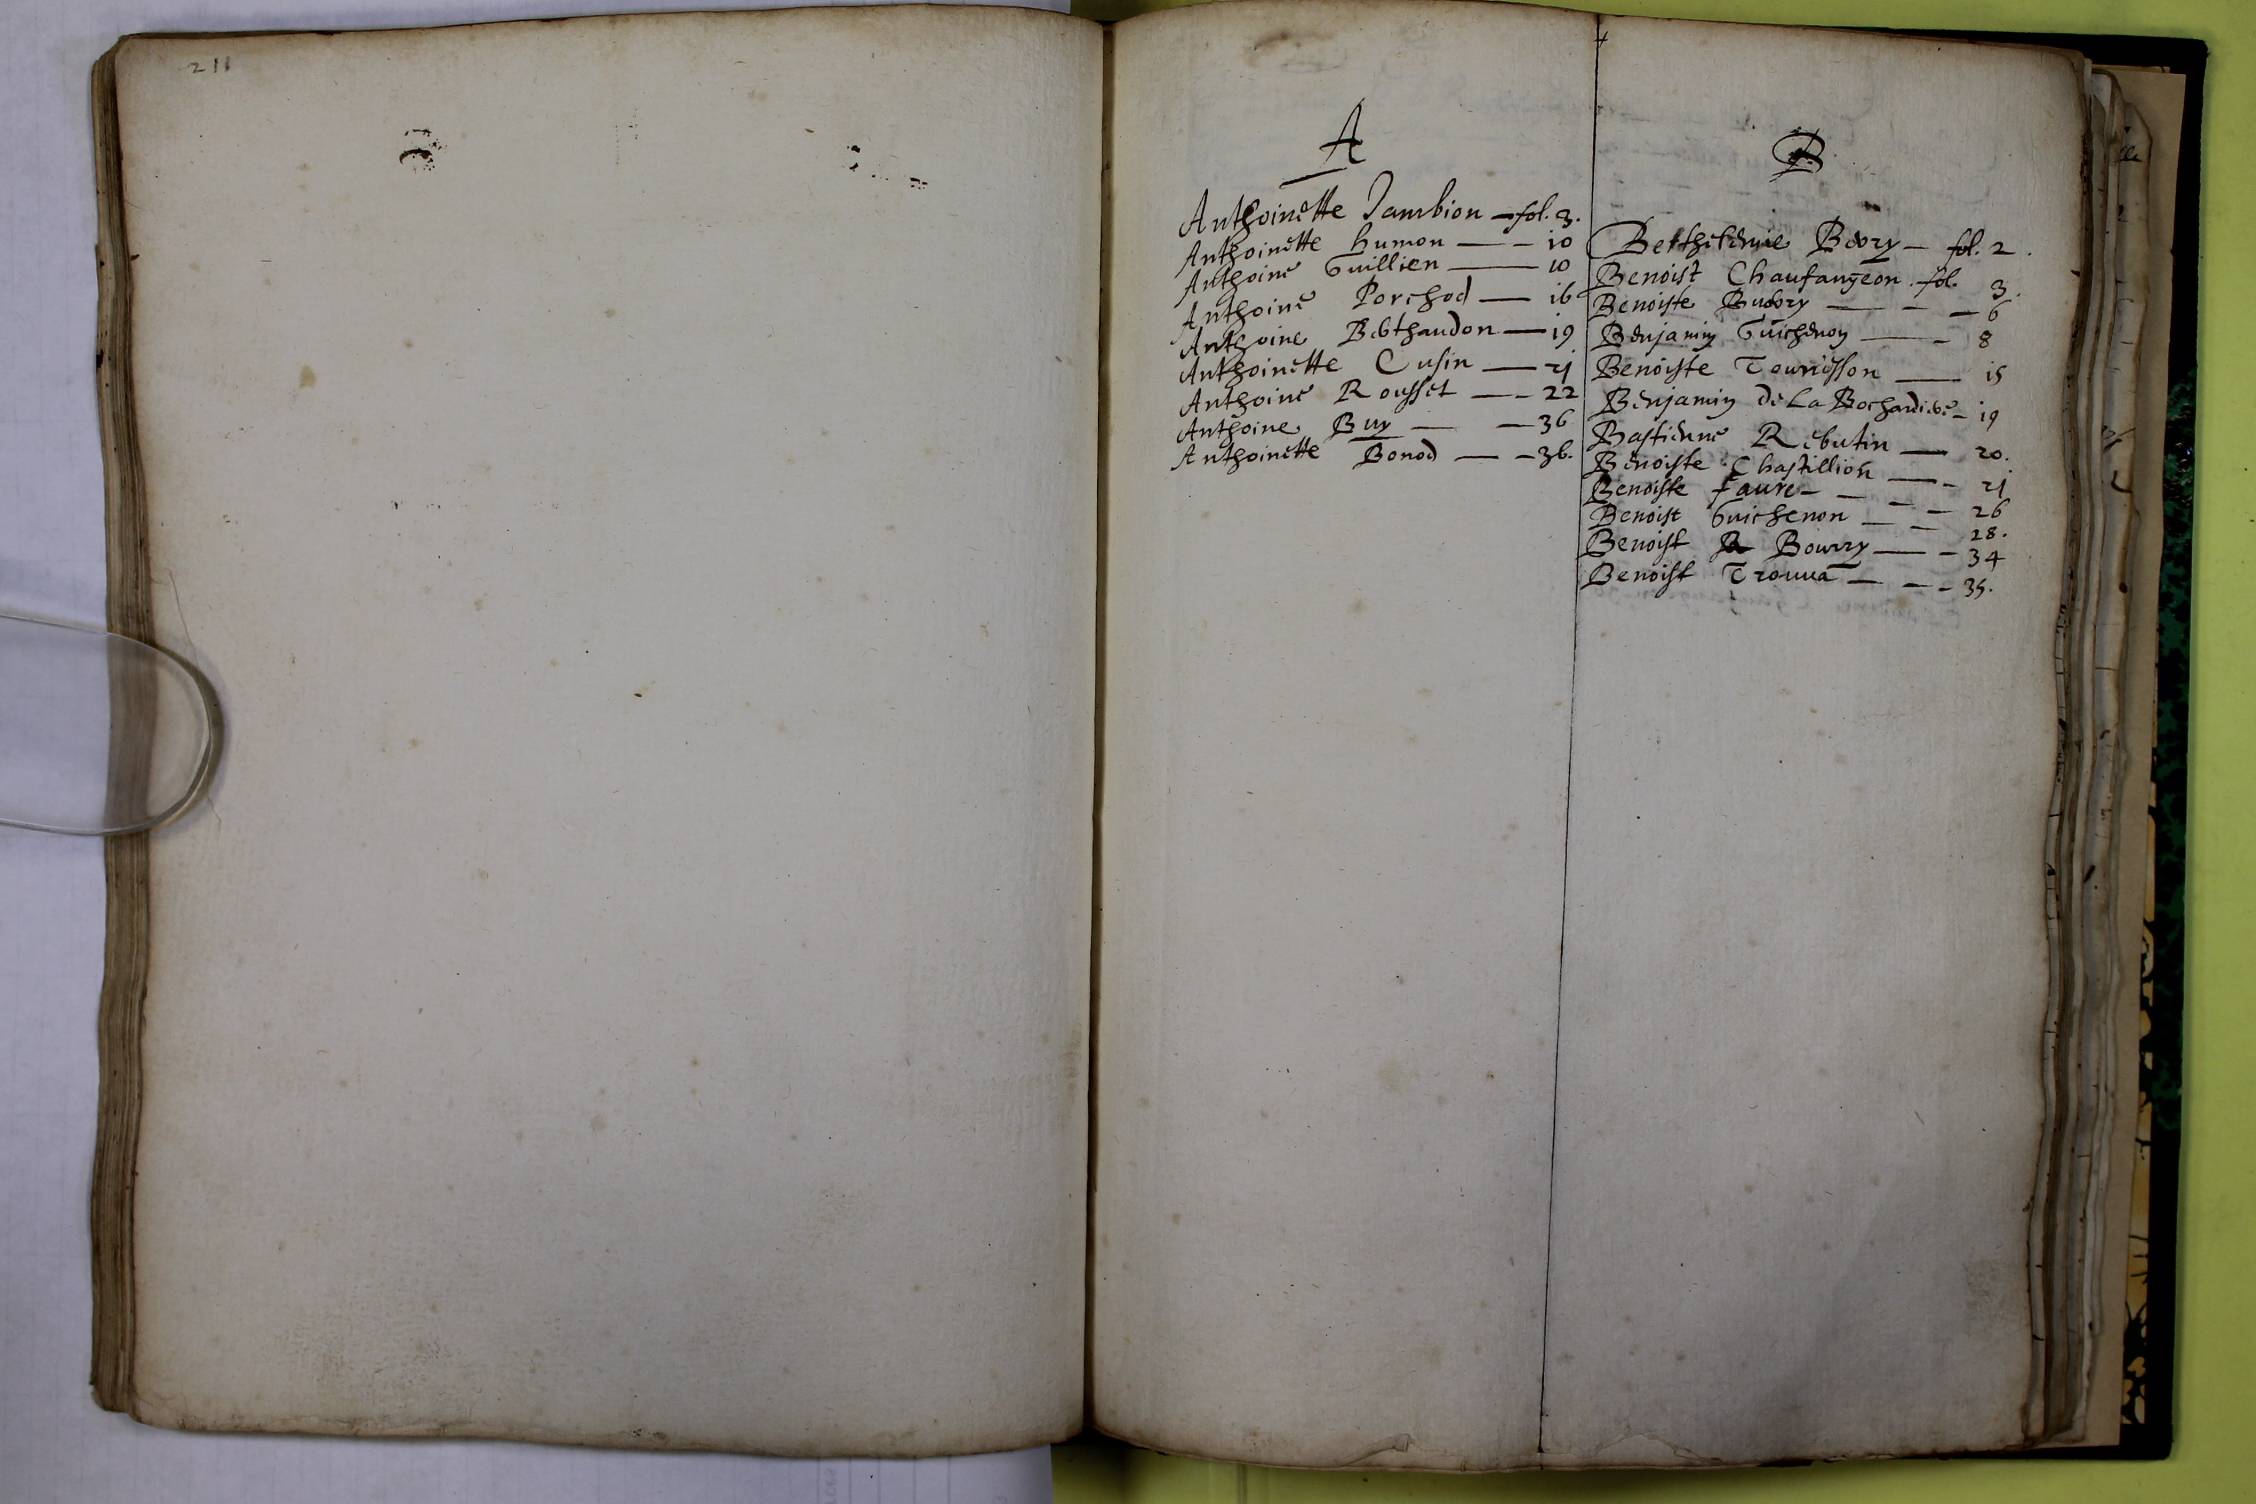 211
A
Anthoinette Jambion — fol. 3.
Anthoinette humon — — 10
Anthoine Guillien — 10
Anthoine Porchod — 16
Anthoine Bebthaudon — 19
Anthoinette Cusin — 21
Anthoine Rousset — — 22
Anthoine Buy — — 36
Anthoinette Bonod — — 36.
B
Bevry — fol. 2.
Benoist Chaufangeon. fol. 3.
Benoiste Buvry — — — 6
Benjamin Guichenon — — 8
Benoiste Tournisson — 15
Benjamin de La Bochardiere — 19
Bastienne Rebutin — 20.
Benoiste Chastillion — — 21
Benoiste faure — — — — 26
Benoist Guichenon — — 28.
Benoist Bourry — — 34
Benoist Trouua — — — 35.